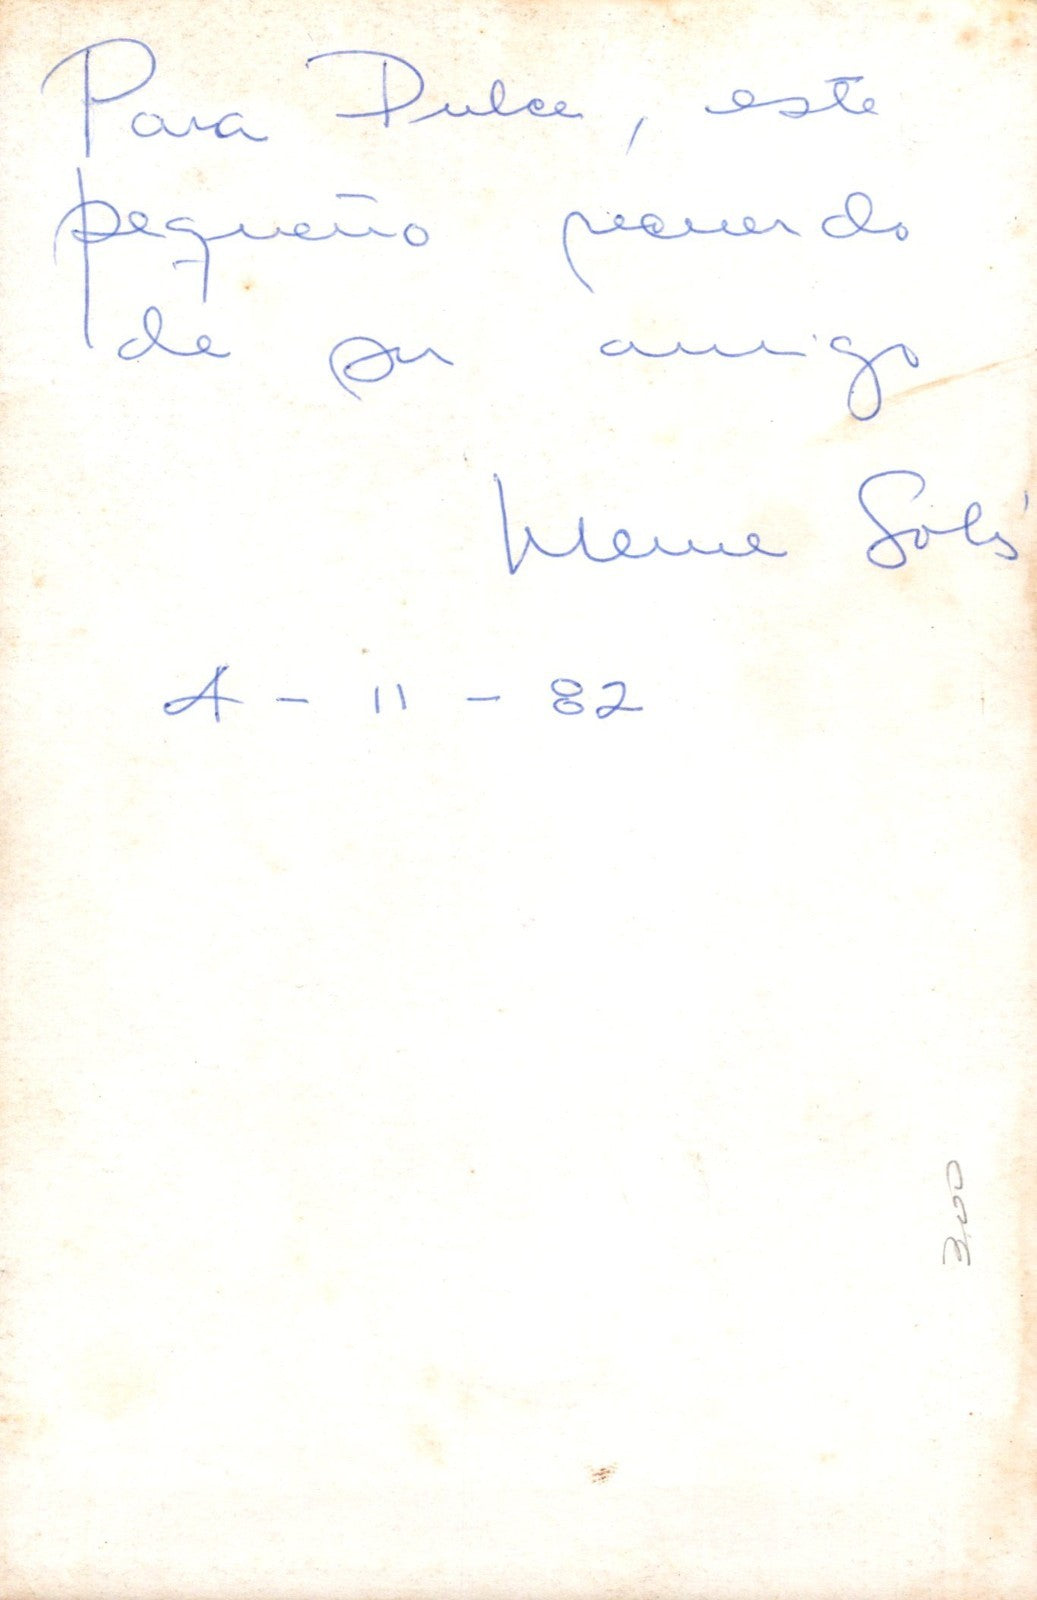 Para Dulce, este
pequeño recuerdo
de su amigo
Meme Solís
4 - 11 - 82
300